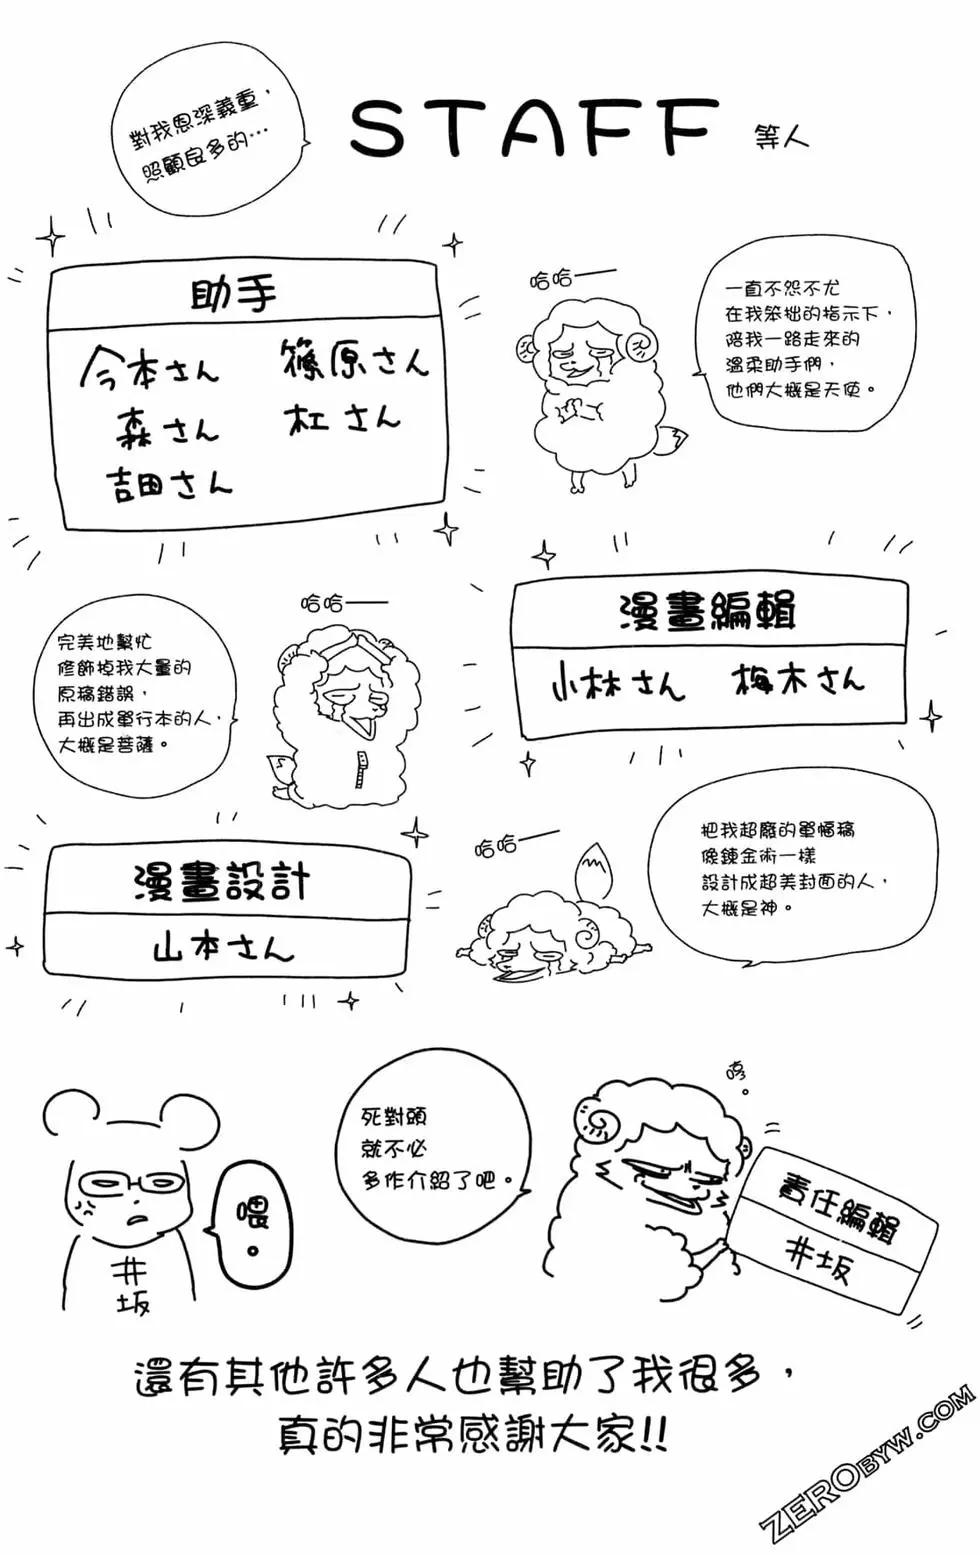 對我恩深義重，
照顧良多的…
STAFF 等人
助手
今本さん 篠原さん
森さん 杜さん
吉田さん
哈哈——
一直不怨不尤
在我笨拙的指示下，
陪我一路走來的
溫柔助手們，
他們大概是天使。
漫畫編輯
小林さん 梅木さん
哈哈——
完美地幫忙
修飾掉我大量的
原稿錯誤，
再出成單行本的人，
大概是菩薩。
漫畫設計
山本さん
哈哈——
把我超廢的單幅稿
像鍊金術一樣
設計成超美封面的人，
大概是神。
死對頭
就不必
多作介紹了吧。
咚。
責任編輯
井坂
喂。
井坂
還有其他許多人也幫助了我很多，
真的非常感謝大家!!
ZEROBYW.COM